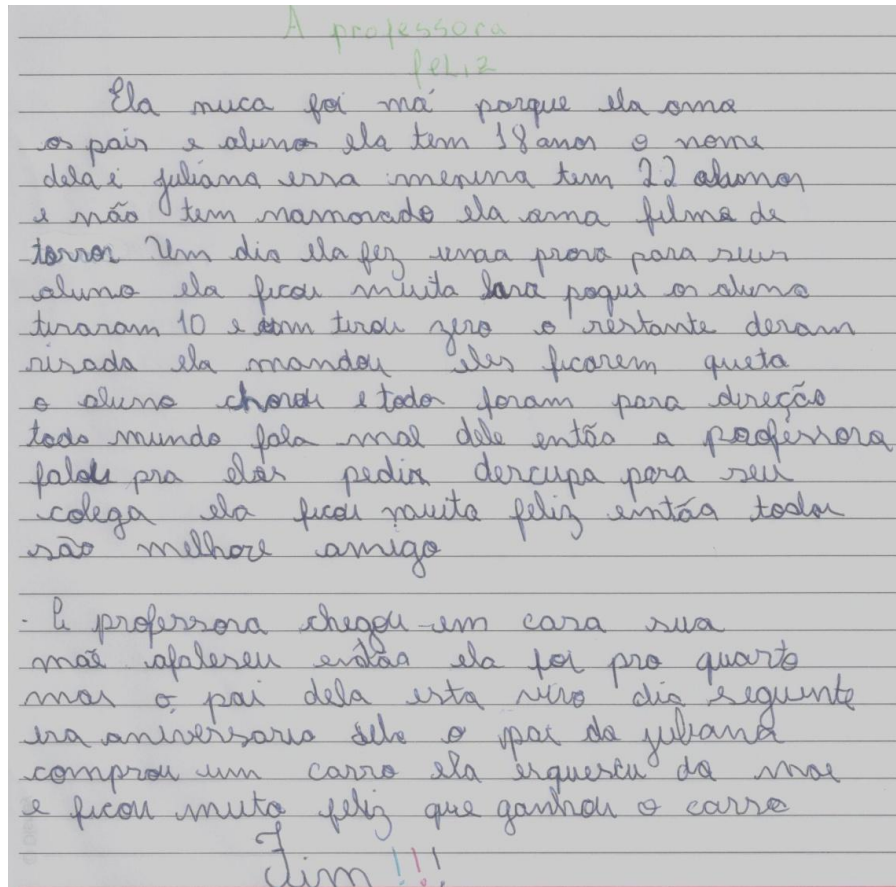 A professora
feliz
Ela nuca foi má porque ela ama
os pais e alunos ela tem 18 anos o nome
dela é juliana essa menina tem 22 alunos
e não tem namorado ela ama filme de
terror Um dia ela fez uma prova para seus
aluno ela ficou muita poque os aluno
tiraram 10 e um tirou zero o restante deram
risada ela mandou eles ficarem queta
o aluno chorou e todos foram para direção
todo mundo fala mal dele então a professora
falou pra elas pedir descupa para seu
colega ela ficou muita feliz então todos
são melhore amigo
A professora chegou em casa sua
mãe afaleseu então ela foi pro quarto
mas o pai dela esta vivo dia seguinte
era aniversario dela o pai da juliana
comprou um carro ela esqueseu da mae
e ficou muto feliz que ganhou o carro
Fim!!!